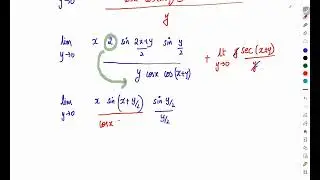 y
lim y→0 x 2 sin (2x+y)/2 sin y/2 / y cosx cos(x+y) + lt y→0 y sec(x+y) / y
lim y→0 x sin(x+y/2) / cosx · sin y/2 / y/2